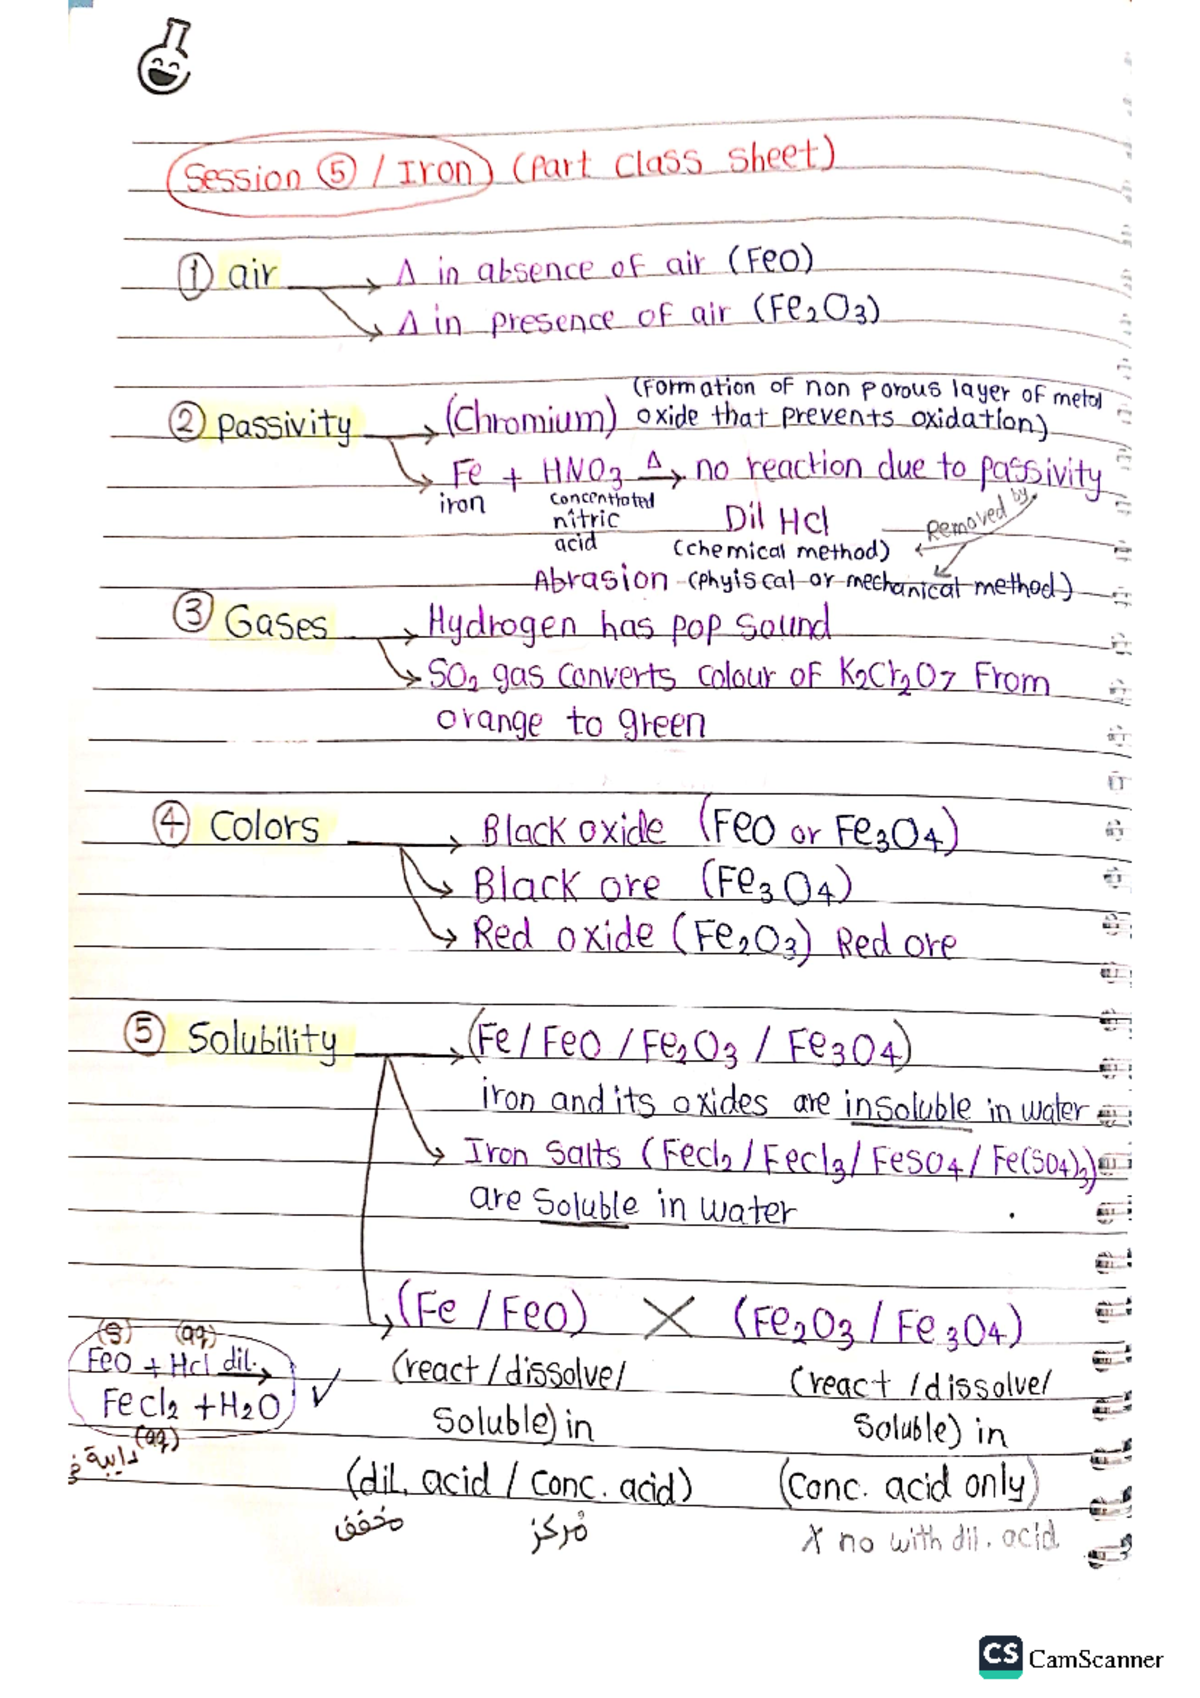 Session ⑤ / Iron) (Part Class sheet)
① air → Δ in absence of air (FeO)
→ Δ in presence of air (Fe₂O₃)
(Formation of non porous layer of metal
② Passivity → (Chromium) oxide that prevents oxidation)
→ Fe + HNO₃ Δ→ no reaction due to passivity
iron concentrated nitric acid
Dil Hcl Removed by
(chemical method)
Abrasion (phyiscal or mechanical method)
③ Gases → Hydrogen has pop sound
→ SO₂ gas converts colour of K₂Cr₂O₇ From
orange to green
④ Colors → Black oxide (FeO or Fe₃O₄)
→ Black ore (Fe₃O₄)
→ Red oxide (Fe₂O₃) Red ore
⑤ Solubility → (Fe / FeO / Fe₂O₃ / Fe₃O₄)
iron and its oxides are insoluble in water
→ Iron Salts (Fecl₂ / Fecl₃ / FeSO₄ / Fe(SO₄)₃)
are Soluble in water
→ (Fe / FeO) X (Fe₂O₃ / Fe₃O₄)
(s) (aq)
FeO + Hcl dil. →
Fecl₂ + H₂O ✓
(aq)
دايبة
(react / dissolve/ (react / dissolve/
Soluble) in Soluble) in
(dil. acid / conc. acid) (conc. acid only)
مخفف مُركز X no with dil. acid
CS CamScanner